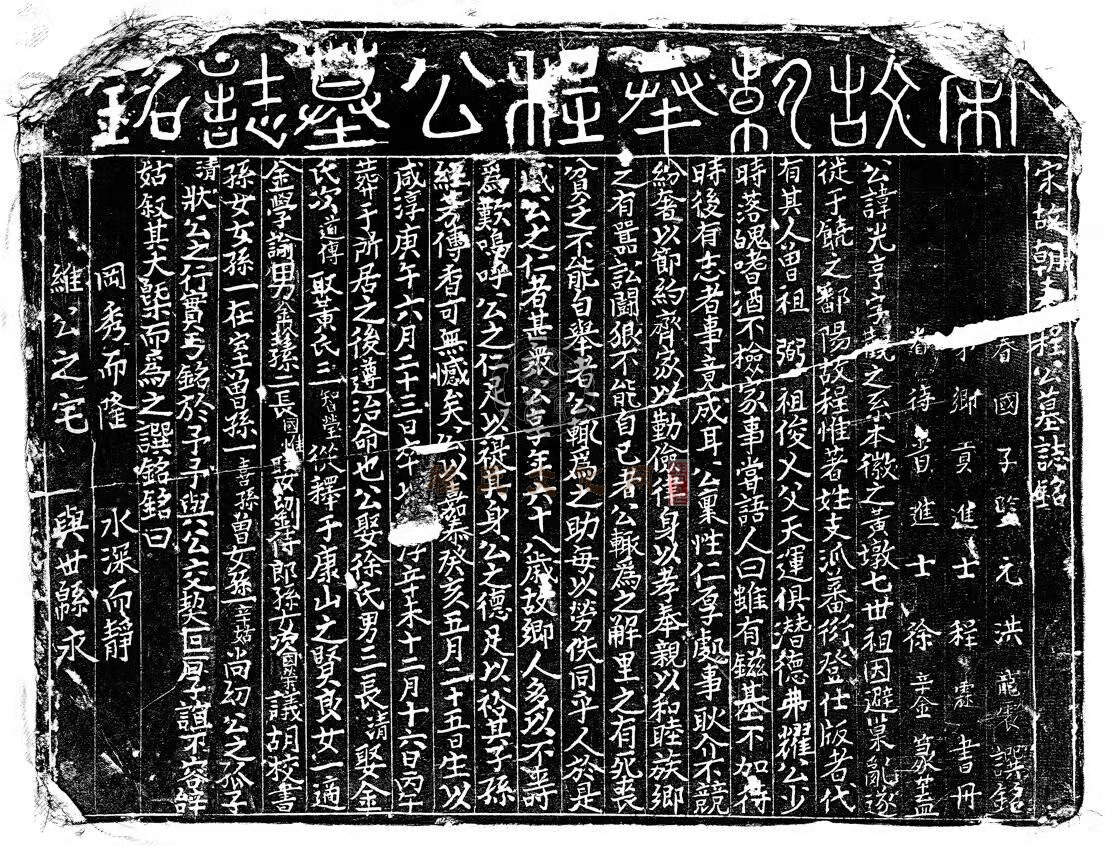 宋故朝奉程公墓誌銘
宋故朝奉程公墓誌銘
眷國子監元洪龍震譔銘
鄉貢進士程霖書丹
眷待省進士徐金篆蓋
公諱光亨字載之系本徽之黃墩七世祖因避巢亂遂
徙于饒之鄱陽故程惟著姓支派蕃衍登仕版者代
有其人曾祖弼祖俊乂父天運俱潛德弗耀公少
時落魄嗜酒不檢家事甞語人曰雖有鎡基不如待
時後有志者事竟成耳公稟性仁厚處事耿介不競
紛奢以節約齊家以勤儉律身以孝奉親以和睦族鄉
之有嚚訟鬪狠不能自已者公輒為之解里之有死喪
貧乏不能自舉者公輒為之助每以勞佚同乎人於是
咸公之仁者甚衆公享年六十八歲故鄉人多以不壽
為歎嗚呼公之仁足以禔其身公之德足以裕其子孫
經芳傳香可無憾矣公以嘉泰癸亥五月二十五日生以
咸淳庚午六月二十三日卒以淳辛未十二月十六日丙午
葬于所居之後遵治命也公娶徐氏男三長清娶金
氏次道傳娶黃氏三智瑩從釋于康山之賢良女一適
金學諭男金孫二長國惟娶劉侍郎孫女次國議胡校書
孫女女孫一在室曾孫一喜孫曾女孫一辛姑尚幼公之孤子
清狀公之行實丐銘於予予與公交契叵厚子誼不容辭
姑叙其大槩而為之譔銘銘曰
岡秀而隆 水深而靜
維公之宅 與世緜永